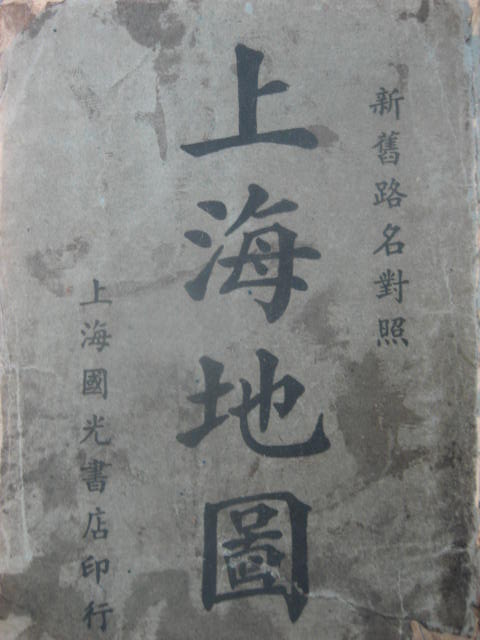 新舊路名對照
上海地圖
上海國光書店印行